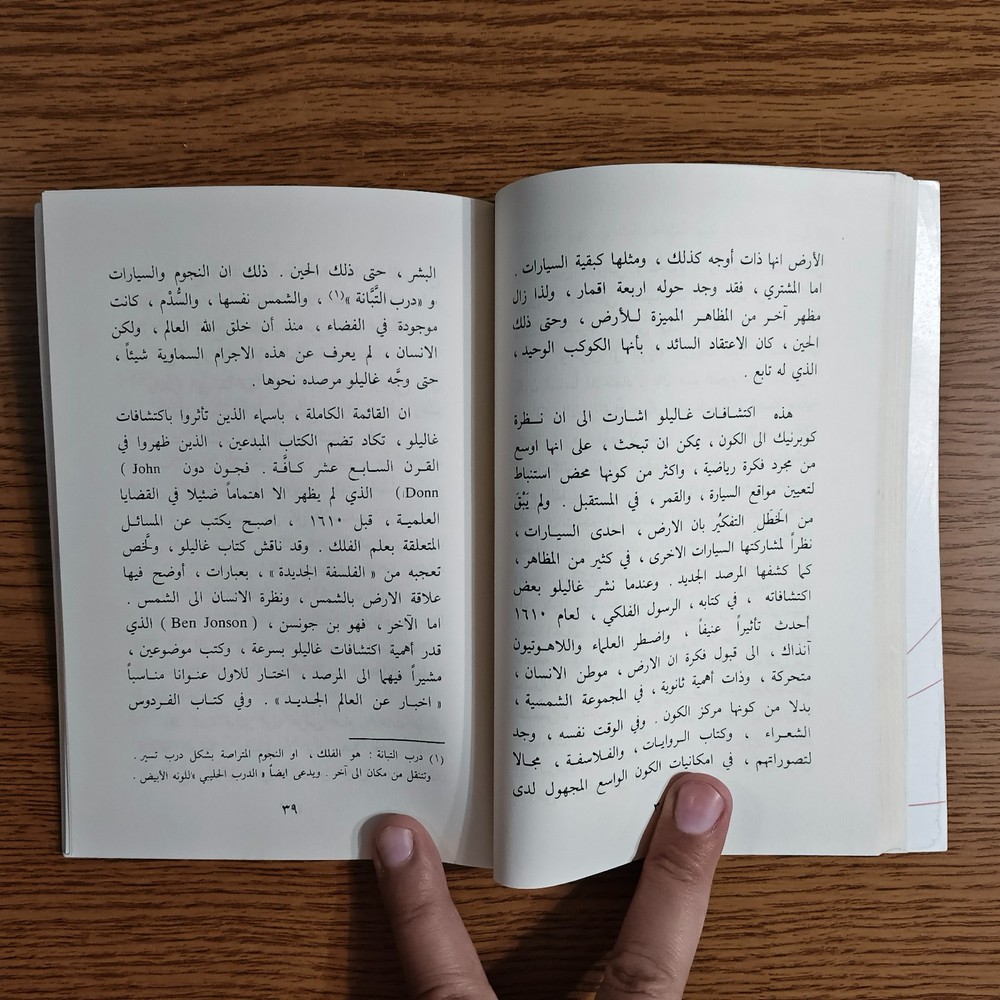 الأرض انها ذات أوجه كذلك ، ومثلها كبقية السيارات .
اما المشتري ، فقد وجد حوله اربعة اقمار ، ولذا زال
مظهر آخـر من المظاهـر المميزة لـلأرض ، وحتى ذلك
الحين ، كان الاعتقاد السائد ، بأنها الكوكب الوحيد ،
الذي له تابع .
هذه اكتشافات غـاليلو اشارت الى ان نـظرة
كوبرنيك الى الكون ، يمكن ان تبحث ، على انها اوسع
من مجرد فكرة رياضية ، واكثر من كونها محض استنباط
لتعيين مواقع السيارة ، والقمر ، في المستقبل . ولم يَبْقَ
من الخَطَل التفكيُر بان الارض ، احدى السيـارات ،
نظراً لمشاركتها السيارات الاخرى ، في كثير من المظاهر ،
كما كشفها المرصد الجديد . وعندما نشر غاليلو بعض
اكتشافاته ، في كتابه ، الرسول الفلكي ، لعام ١٦١٠
أحدث تأثيراً عنيفاً ، واضطر العلماء واللاهوتيون
آنذاك ، الى قبول فكرة ان الارض ، موطن الانسان ،
متحركة ، وذات أهمية ثانوية ، في المجموعة الشمسية ،
بدلا من كونها مركز الكون . وفي الوقت نفسه ، وجد
الشعـراء ، وكتاب الـروايـات ، والفلاسفـة ، مجـالا
لتصوراتهم ، في امكانيات الكون الواسع المجهول لدى
البشر ، حتى ذلك الحين . ذلك ان النجوم والسيارات
و «درب التَّبَّانة »(١) ، والشمس نفسها ، والسُّدْم ، كانت
موجودة في الفضاء ، منذ أن خلق الله العالم ، ولكن
الانسان ، لم يعرف عن هذه الاجرام السماوية شيئاً ،
حتى وجَّه غاليلو مرصده نحوها .
ان القائمة الكاملة ، باسماء الذين تأثروا باكتشافات
غاليلو ، تكاد تضم الكتاب المبدعين ، الذين ظهروا في
القـرن السـابـع عشر كـافَّـة . فجـون دون ( John
Donn ) الذي لم يظهر الا اهتماماً ضئيلا في القضايا
العلميـة ، قبل ١٦١٠ ، اصبـح يكتب عن المسائـل
المتعلقة بعلم الفلك . وقد ناقش كتاب غاليلو ، ولخَّص
تعجبه من « الفلسفة الجديدة » ، بعبارات ، أوضح فيها
علاقة الارض بالشمس ، ونظرة الانسان الى الشمس .
اما الآخر ، فهو بن جونسن ، ( Ben Jonson ) الذي
قدر أهمية اكتشافات غاليلو بسرعة ، وكتب موضوعين ،
مشيراً فيهما الى المرصد ، اختـار للاول عنـوانا منـاسبـاً
« اخبـار عن العالم الجـديـد » . وفي كتـاب الفـردوس
(١) درب التبانة : هو الفلك ، او النجوم المتراصة بشكل درب تسير .
وتنتقل من مكان الى آخر . ويدعى ايضاً « الدرب الحليبي »للونه الأبيض .
٣٩